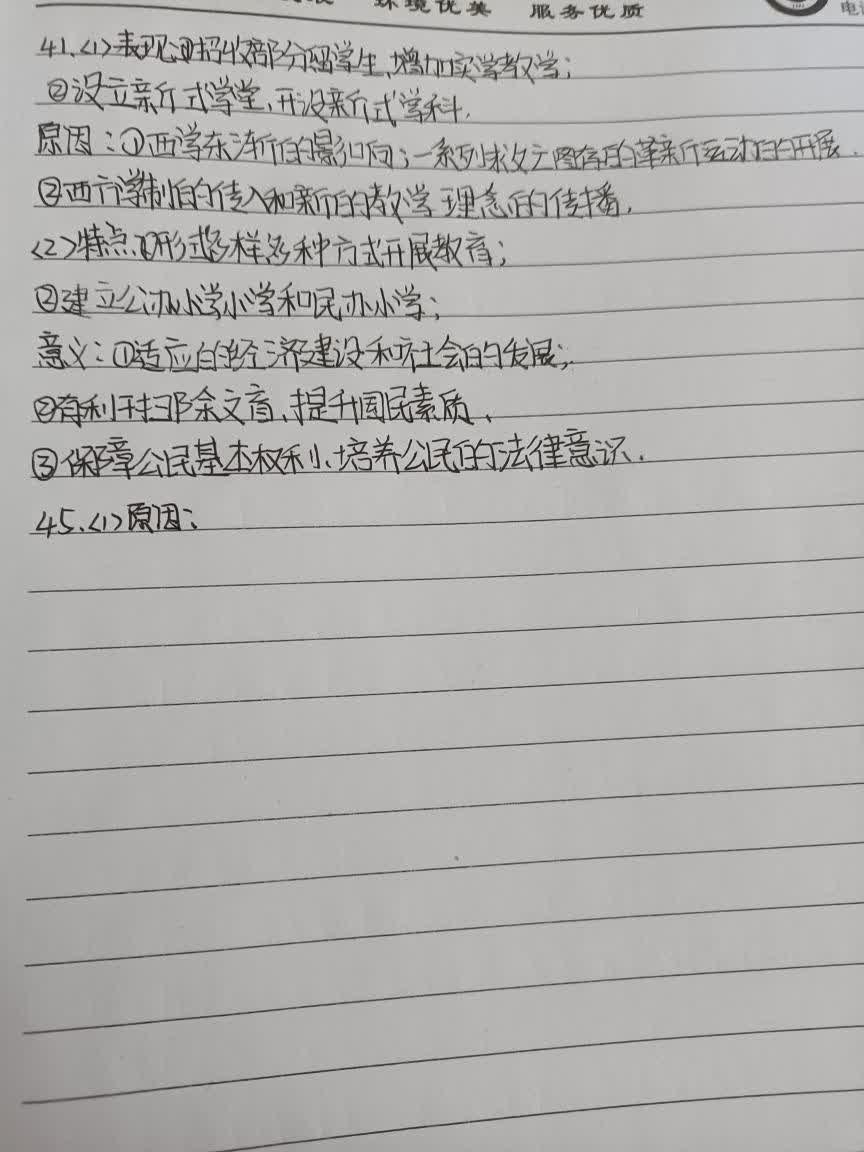 环境优美 服务优质
41.<1>表现:①招收部分留学生、增加实学教学;
②设立新式学堂、开设新式学科.
原因:①西学东渐的影响;一系列救亡图存的革新运动的开展.
②西方学制的传入和新的教学理念的传播.
<2>特点:①形式多样多种方式开展教育;
②建立公办小学小学和民办小学;
意义:①适应的经济建设和社会的发展;
②有利于扫除文盲、提升国民素质、
③保障公民基本权利、培养公民的法律意识.
45.<1>原因: